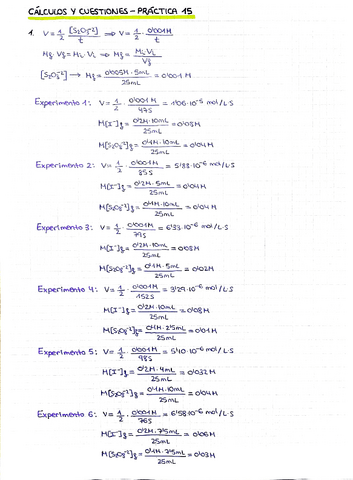 CÁLCULOS Y CUESTIONES - PRÁCTICA 15
1. V = 1/2 [S₂O₃⁻²]/t ⇒ V = 1/2 · 0'001M/t
Mf · Vf = Mi · Vi ⇒ Mf = Mi·Vi/Vf
[S₂O₃⁻²] → Mf = 0'005M · 5mL/25mL = 0'001M
Experimento 1: V = 1/2 · 0'001M/47s = 1'06·10⁻⁵ mol/L·S
M[I⁻]f = 0'2M · 10mL/25mL = 0'08M
M[S₂O₈⁻²]f = 0'1M · 10mL/25mL = 0'04M
Experimento 2: V = 1/2 · 0'001M/85s = 5'88·10⁻⁶ mol/L·S
M[I⁻]f = 0'2M · 5mL/25mL = 0'04M
M[S₂O₈⁻²]f = 0'1M · 10mL/25mL = 0'04M
Experimento 3: V = 1/2 · 0'001M/79s = 6'33·10⁻⁶ mol/L·S
M[I⁻]f = 0'2M · 10mL/25mL = 0'08M
M[S₂O₈⁻²]f = 0'1M · 5mL/25mL = 0'02M
Experimento 4: V = 1/2 · 0'001M/152s = 3'29·10⁻⁶ mol/L·S
M[I⁻]f = 0'2M · 10mL/25mL = 0'08M
M[S₂O₈⁻²]f = 0'1M · 2'5mL/25mL = 0'01M
Experimento 5: V = 1/2 · 0'001M/98s = 5'10·10⁻⁶ mol/L·S
M[I⁻]f = 0'2M · 4mL/25mL = 0'032M
M[S₂O₈⁻²]f = 0'1M · 10mL/25mL = 0'04M
Experimento 6: V = 1/2 · 0'001M/76s = 6'58·10⁻⁶ mol/L·S
M[I⁻]f = 0'2M · 7'5mL/25mL = 0'06M
M[S₂O₈⁻²]f = 0'1M · 7'5mL/25mL = 0'03M